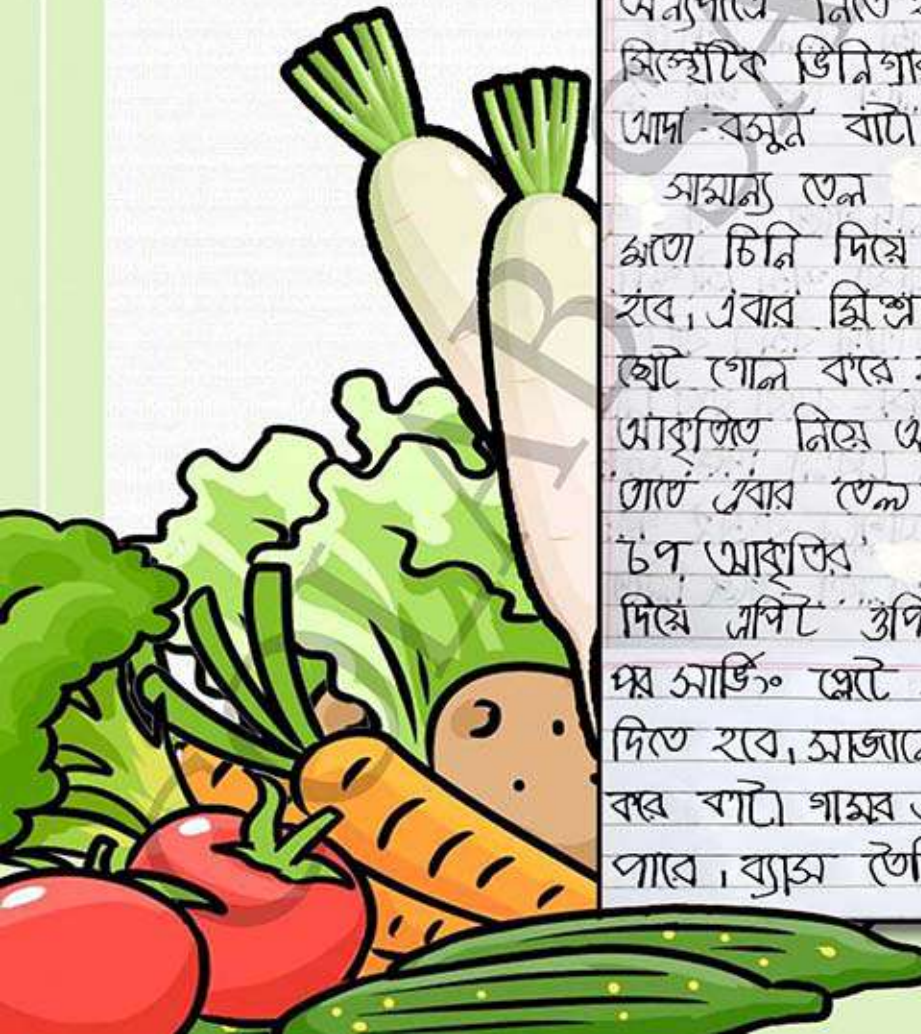 অন্যপাত্রে নিতে
সিন্থেটিক ভিনিগার
আদা রসুন বাটা
সামান্য তেল
মতো চিনি দিয়ে
হবে, এবার মিশ্র
ছোট গোল করে
আকৃতিতে নিয়ে
তাতে এবার তেল
চপ আকৃতির
দিয়ে এপিট ওপি
পর সার্ভিং প্লেটে
দিতে হবে, সাজানো
করে কাটা গাজর
পারে। ব্যাস তৈরি